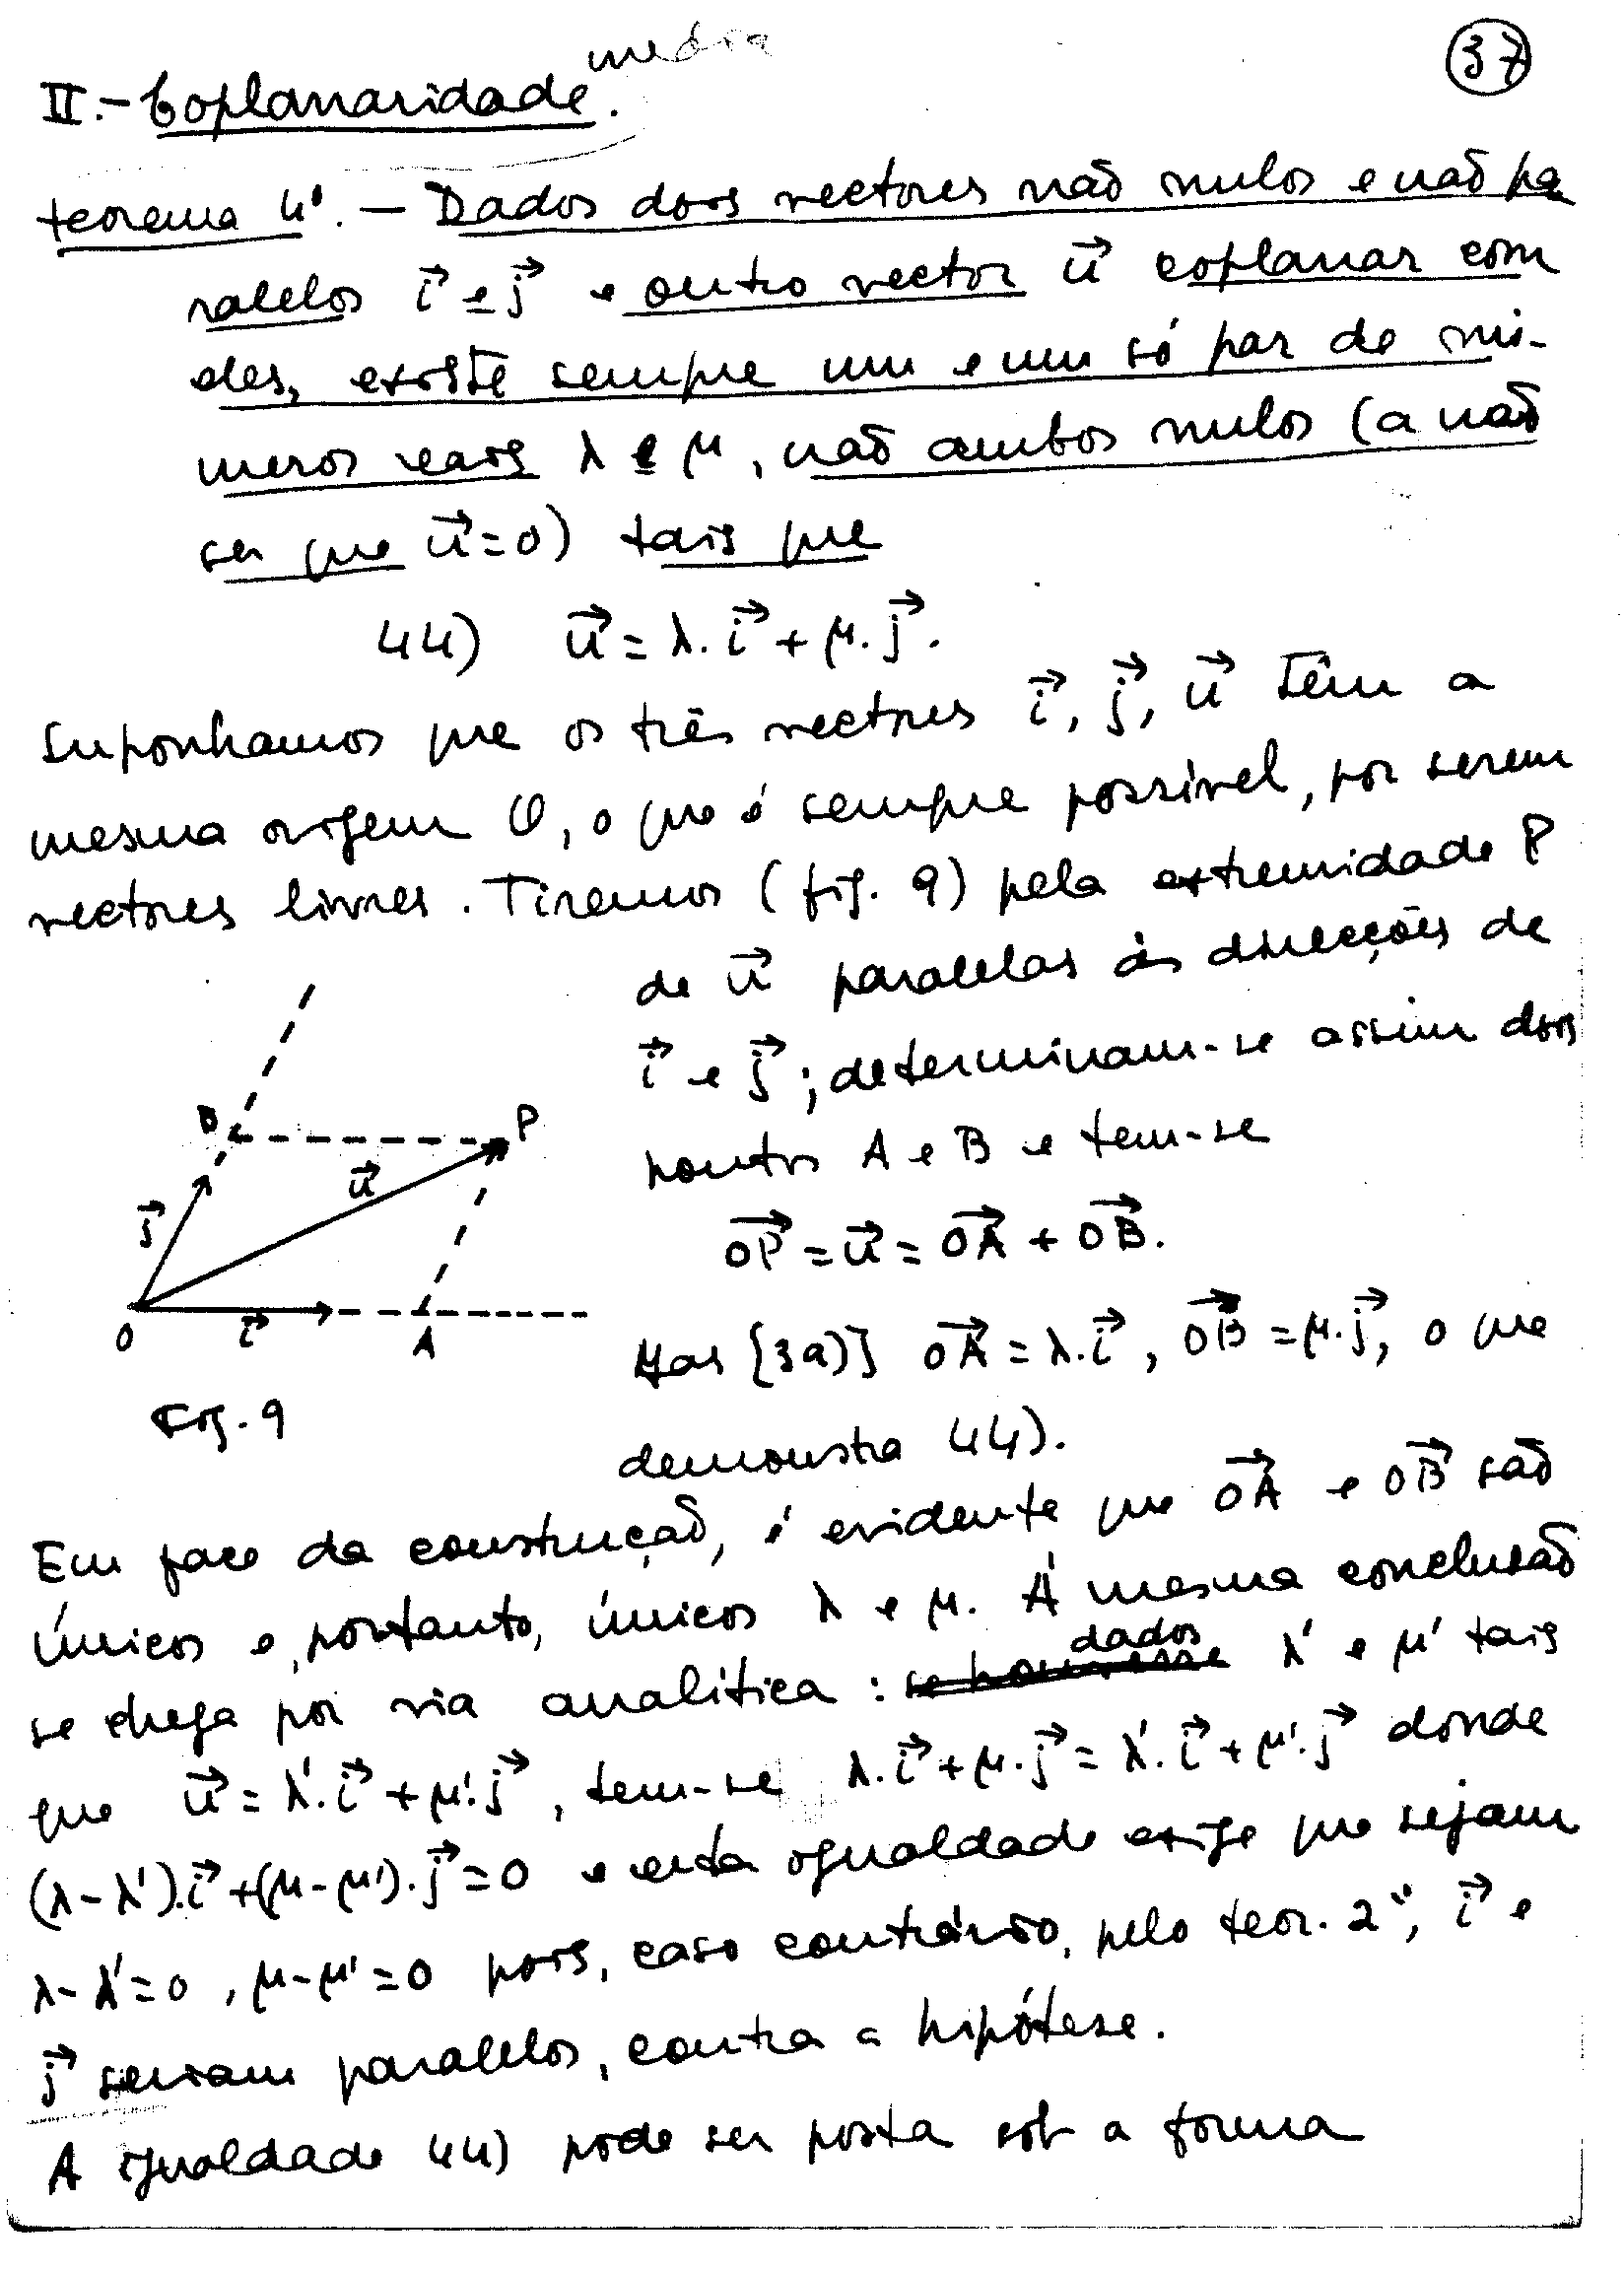 37
média
II.- Coplanaridade.
teorema 4º. — Dados dois vectores não nulos e não pa
ralelos i⃗ e j⃗ e outro vector u⃗ coplanar com
eles, existe sempre um e um só par de nú-
meros reais λ e μ, não ambos nulos (a não
ser que u⃗=0) tais que
44) u⃗ = λ.i⃗ + μ.j⃗.
Suponhamos que os três vectores i⃗, j⃗, u⃗ têm a
mesma origem O, o que é sempre possível, por serem
vectores livres. Tiremos (fig. 9) pela extremidade P
de u⃗ paralelas às direcções de
i⃗ e j⃗; determinam-se assim dois
pontos A e B e tem-se
OP⃗ = u⃗ = OA⃗ + OB⃗.
Mas [3a)] OA⃗ = λ.i⃗, OB⃗ = μ.j⃗, o que
demonstra 44).
B P
u⃗
j⃗
O i⃗ A
Fig. 9
Em face da construção, é evidente que OA⃗ e OB⃗ são
únicos e, portanto, únicos λ e μ. À mesma conclusão
se chega por via analítica : se houvesse dados λ' e μ' tais
que u⃗ = λ'.i⃗ + μ'.j⃗, tem-se λ.i⃗ + μ.j⃗ = λ'.i⃗ + μ'.j⃗ donde
(λ-λ').i⃗ + (μ-μ').j⃗ = 0 e esta igualdade exige que sejam
λ-λ'=0, μ-μ'=0 pois, caso contrário, pelo teor. 2º, i⃗ e
j⃗ seriam paralelos, contra a hipótese.
A igualdade 44) pode ser posta sob a forma